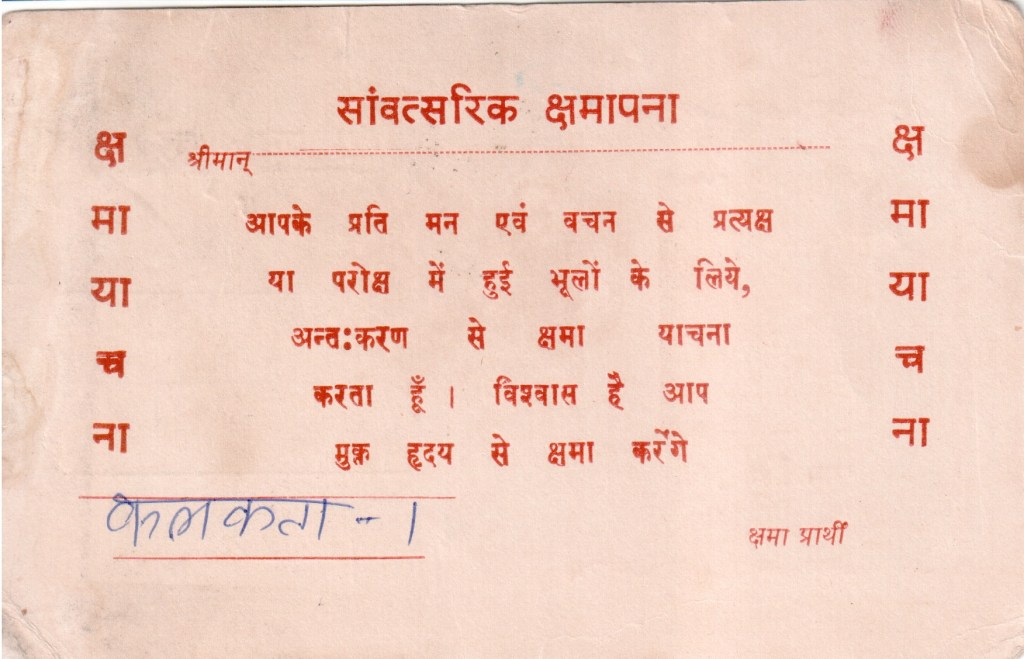 सांवत्सरिक क्षमापना
श्रीमान्
आपके प्रति मन एवं वचन से प्रत्यक्ष
या परोक्ष में हुई भूलों के लिये,
अन्त:करण से क्षमा याचना
करता हूँ । विश्वास है आप
मुक्त हृदय से क्षमा करेंगे
क्ष
मा
या
च
ना
क्ष
मा
या
च
ना
कलकता - 1
क्षमा प्रार्थी